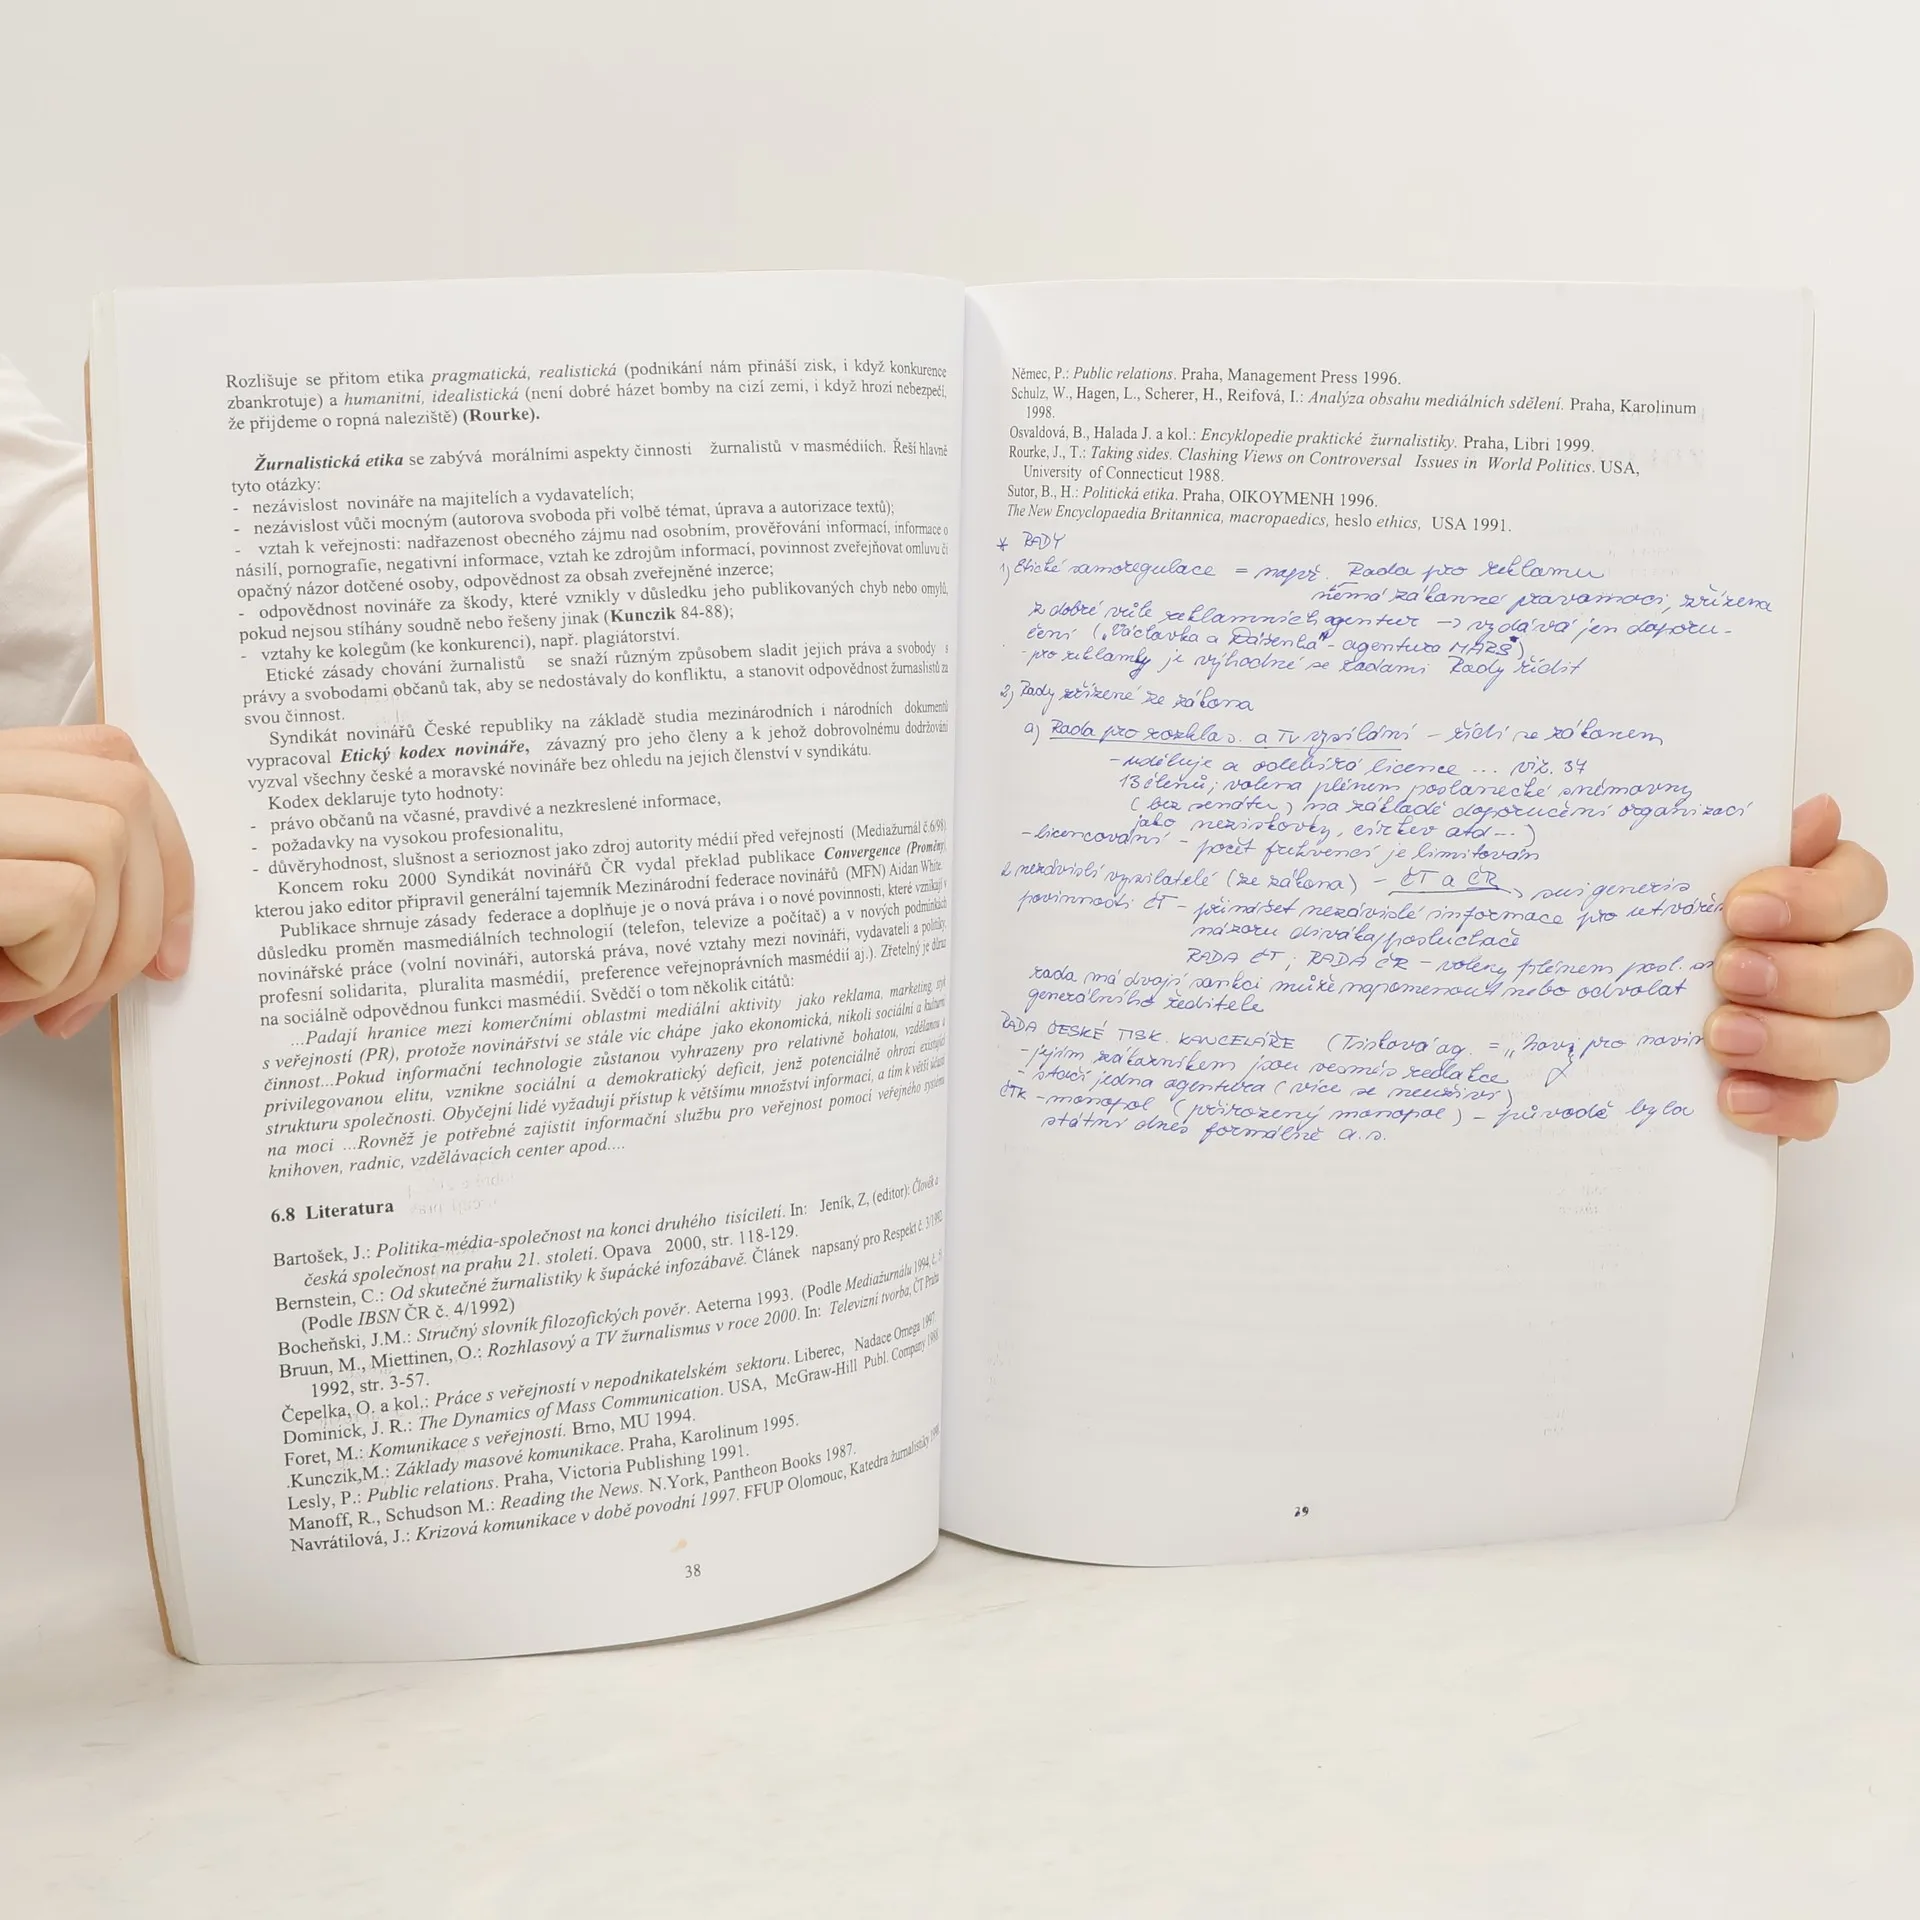 Rozlišuje se přitom etika pragmatická, realistická (podnikání nám přináší zisk, i když konkurence
zbankrotuje) a humanitní, idealistická (není dobré házet bomby na cizí zemi, i když hrozí nebezpečí,
že přijdeme o ropná naleziště) (Rourke).
Žurnalistická etika se zabývá morálními aspekty činnosti žurnalistů v masmédiích. Řeší hlavně
tyto otázky:
- nezávislost novináře na majitelích a vydavatelích;
- nezávislost vůči mocným (autorova svoboda při volbě témat, úprava a autorizace textů);
- vztah k veřejnosti: nadřazenost obecného zájmu nad osobním, prověřování informací, informace o
násilí, pornografie, negativní informace, vztah ke zdrojům informací, povinnost zveřejňovat omluvu či
opačný názor dotčené osoby, odpovědnost za obsah zveřejněné inzerce;
- odpovědnost novináře za škody, které vznikly v důsledku jeho publikovaných chyb nebo omylů,
pokud nejsou stíhány soudně nebo řešeny jinak (Kunczik 84-88);
- vztahy ke kolegům (ke konkurenci), např. plagiátorství.
Etické zásady chování žurnalistů se snaží různým způsobem sladit jejich práva a svobody s
právy a svobodami občanů tak, aby se nedostávaly do konfliktu, a stanovit odpovědnost žurnaslistů za
svou činnost.
Syndikát novinářů České republiky na základě studia mezinárodních i národních dokumentů
vypracoval Etický kodex novináře, závazný pro jeho členy a k jehož dobrovolnému dodržování
vyzval všechny české a moravské novináře bez ohledu na jejich členství v syndikátu.
Kodex deklaruje tyto hodnoty:
- právo občanů na včasné, pravdivé a nezkreslené informace,
- požadavky na vysokou profesionalitu,
- důvěryhodnost, slušnost a serioznost jako zdroj autority médií před veřejností (Mediažurnál č.6/98).
Koncem roku 2000 Syndikát novinářů ČR vydal překlad publikace Convergence (Proměny),
kterou jako editor připravil generální tajemník Mezinárodní federace novinářů (MFN) Aidan White.
Publikace shrnuje zásady federace a doplňuje je o nová práva i o nové povinnosti, které vznikají v
důsledku proměn masmediálních technologií (telefon, televize a počítač) a v nových podmínkách
novinářské práce (volní novináři, autorská práva, nové vztahy mezi novináři, vydavateli a politiky,
profesní solidarita, pluralita masmédií, preference veřejnoprávních masmédií aj.). Zřetelný je důraz
na sociálně odpovědnou funkci masmédií. Svědčí o tom několik citátů:
...Padají hranice mezi komerčními oblastmi mediální aktivity jako reklama, marketing, styk
s veřejností (PR), protože novinářství se stále víc chápe jako ekonomická, nikoli sociální a kulturní
činnost...Pokud informační technologie zůstanou vyhrazeny pro relativně bohatou, vzdělanou a
privilegovanou elitu, vznikne sociální a demokratický deficit, jenž potenciálně ohrozí existující
strukturu společnosti. Obyčejní lidé vyžadují přístup k většímu množství informací, a tím k větší účasti
na moci ...Rovněž je potřebné zajistit informační službu pro veřejnost pomocí veřejného systému
knihoven, radnic, vzdělávacích center apod....
6.8 Literatura
Bartošek, J.: Politika-média-společnost na konci druhého tisíciletí. In: Jeník, Z, (editor): Člověk a
česká společnost na prahu 21. století. Opava 2000, str. 118-129.
Bernstein, C.: Od skutečné žurnalistiky k šupácké infozábavě. Článek napsaný pro Respekt č. 3/1992
(Podle IBSN ČR č. 4/1992)
Bocheňski, J.M.: Stručný slovník filozofických pověr. Aeterna 1993. (Podle Mediažurnálu 1994, č.
Bruun, M., Miettinen, O.: Rozhlasový a TV žurnalismus v roce 2000. In: Televizní tvorba, ČT Praha
1992, str. 3-57.
Čepelka, O. a kol.: Práce s veřejností v nepodnikatelském sektoru. Liberec, Nadace Omega 1997.
Dominick, J. R.: The Dynamics of Mass Communication. USA, McGraw-Hill Publ. Company
Foret, M.: Komunikace s veřejností. Brno, MU 1994.
.Kunczik,M.: Základy masové komunikace. Praha, Karolinum 1995.
Lesly, P.: Public relations. Praha, Victoria Publishing 1991.
Manoff, R., Schudson M.: Reading the News. N.York, Pantheon Books 1987.
Navrátilová, J.: Krizová komunikace v době povodní 1997. FFUP Olomouc, Katedra žurnalistiky
38
Němec, P.: Public relations. Praha, Management Press 1996.
Schulz, W., Hagen, L., Scherer, H., Reifová, I.: Analýza obsahu mediálních sdělení. Praha, Karolinum
1998.
Osvaldová, B., Halada J. a kol.: Encyklopedie praktické žurnalistiky. Praha, Libri 1999.
Rourke, J., T.: Taking sides. Clashing Views on Controversal Issues in World Politics. USA,
University of Connecticut 1988.
Sutor, B., H.: Politická etika. Praha, OIKOYMENH 1996.
The New Encyclopaedia Britannica, macropaedics, heslo ethics, USA 1991.
* RADY
1) Etické samoregulace = např. Rada pro reklamu
nemá zákonné pravomoci, zřízena
z dobré vůle reklamních agentur → vydává jen doporu-
čení („Václavka a Dášenka" - agentura MARS)
- pro reklamky je výhodné se radami Rady řídit
2) Rady zřízené ze zákona
a) Rada pro rozhlas. a TV vysílání - řídí se zákonem
- uděluje a odebírá licence ... viz. 37
13 členů; volena plénem poslanecké sněmovny
(bez senátu) na základě doporučení organizací
jako neziskovky, církev atd...)
- licencování - počet frekvencí je limitován
2 nezávislí vysilatelé (ze zákona) - ČT a ČR, sui generis
povinnosti ČT - přinášet nezávislé informace pro utvářen
názoru diváka/posluchače
RADA ČT; RADA ČR - voleny plénem posl. sn
rada má dvojí sankci může napomenout nebo odvolat
generálního ředitele
RADA ČESKÉ TISK. KANCELÁŘE (Tisková ag. = „ pro novin
- jejím zákazníkem jsou vesměs redakce
- stačí jedna agentura (více se neuživí)
ČTK - monopol (přirozený monopol) - původě byla
státní dnes formálně a.s.
39